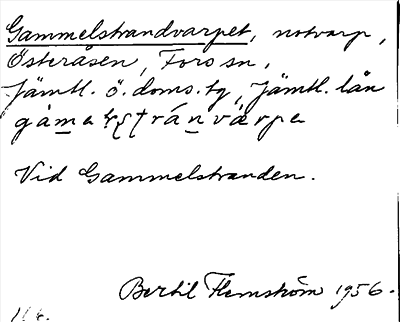 Gammelstrandvarpet, notvarp,
Österåsen, Fors sn,
Jämtl. ö. doms. tg, Jämtl. län
Vid Gammelstranden.
Bertil Flemström 1956.